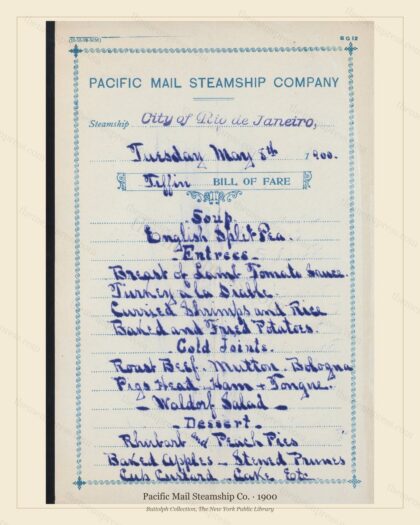 PACIFIC MAIL STEAMSHIP COMPANY
Steamship City of Rio de Janeiro,
Tuesday May 8th 1900.
Tiffin BILL OF FARE
Soup
English Split Pea.
Entrees
Breast of Lamb Tomato Sauce.
Turkey a la Diable.
Curried Shrimps and Rice
Baked and Fried Potatoes.
Cold Joints.
Roast Beef. Mutton. Bologna
Pigs Head. Ham + Tongue.
Waldorf Salad
Dessert.
Rhubarb & Peach Pies
Baked Apples - Stewed Prunes
Cup Custard - Cake Etc
Pacific Mail Steamship Co. · 1900
Buttolph Collection, The New York Public Library